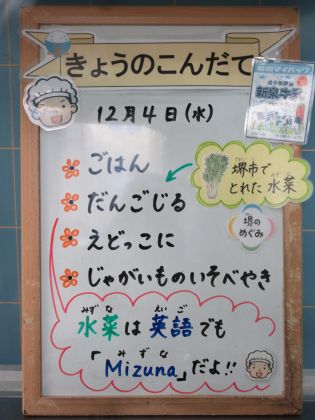 きょうのこんだて
12月4日(水)
新泉州米
ごはん
だんごじる
えどっこに
じゃがいものいそべやき
堺市で
とれた水菜
堺の
めぐみ
みずな えいご
水菜は英語でも
みずな
「Mizuna」だよ!!